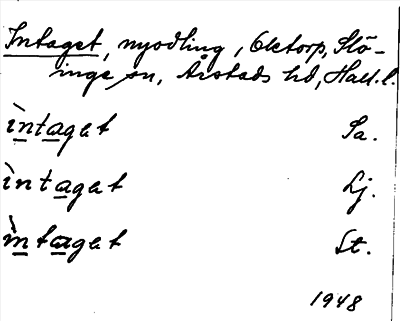 Intaget, nyodling, Oktorp, Slö-
inge sn, Årstads hd, Hall. l.
ìntaget Sa.
ìntaget Lj.
ìntaget St.
1948